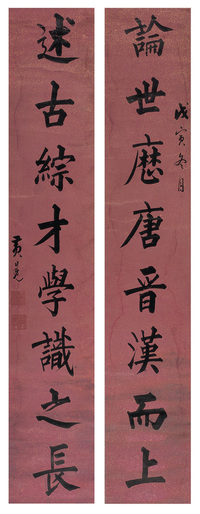 論世歷唐晉漢而上
戊寅冬月
述古綜才學識之長
黃自元